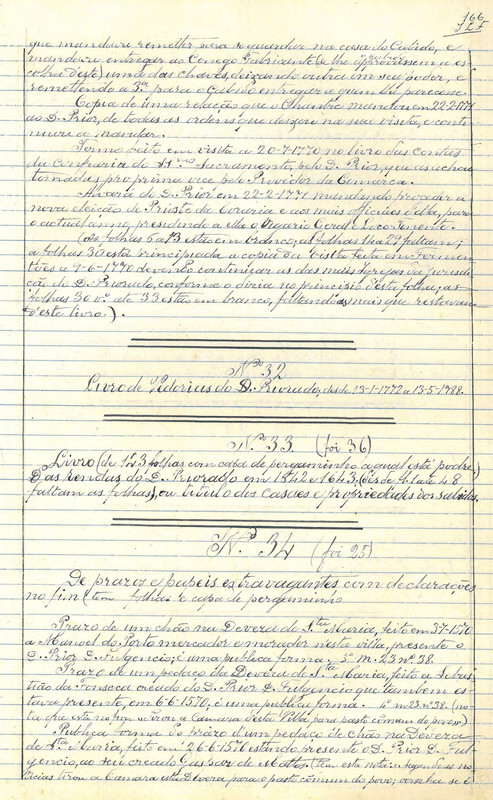 166
que mandava remetter para se guardar na casa do Cabido, e
mandava entregar ao Conego Fabricante (e lhe aprovassem a es-
colha d'este) uma das chaves, deixando outra em seu poder, e
remettendo a 3ª para o Cabido entregar a quem lhe parecesse.
Copia de uma relação que o Chantre mandou em 22-2-1771
ao D. Prior, de todas as ordens que deixou na sua visita, e conti-
nuava a mandar.
Termo feito em visita a 20-7-1770 no livro das contas
da confraria do SS.mo Sacramento, pelo D. Prior, que as achou
tomadas por prima vez pelo Provedor da Comarca.
Alvará do D. Prior em 22-2-1771 mandando proceder a
nova eleição de Prioste da Coraria e aos mais officiaes d'ella, para
o actual anno, presidindo a ella o Vigario Geral e Loco Tenente.
(As folhas 5 a 13 estão em branco, as folhas 14 a 29 faltam;
a folhas 30 está principiada a copia da visita feita em Fermen-
tões a 9-6-1770 devendo continuar as das mais Igrejas da jurisdi-
ção do D. Priorado, conforme o dizia no principio d'esta folha; as
folhas 30 vº até 33 estão em branco, faltando as mais que restavam
d'este livro.).
Nº 32
Livro de Vedorias do D. Priorado, desde 13-1-1772 a 13-5-1788.
Nº 33 (foi 36)
Livro (de 103 folhas com capa de pergaminho a qual está podre)
Das rendas do D. Priorado em 1642 e 1643, (des de 41 até 48
faltam as folhas), ou titulo dos casaes e propriedades dos sabidos.
Nº 34 (foi 25)
De prazos e papeis extravagantes com declarações
no fim (tem folhas e capa de pergaminho
Prazo de um chão na Devera de S.ta Maria, feito em 3-7-1570
a Manoel do Porto mercador e morador nesta villa, presente o
D. Prior D. Fulgencio; é uma publica forma. m. 23 nº 38.
Prazo de um pedaço da Devera de S.ta Maria, feito a Sebas-
tião da Fonseca creado do D. Prior D. Fulgencio que tambem es-
tava presente, em 6-6-1570, é uma publica forma. m. 23. nº 38. (no-
ta que está no fim: o tirou a Camara desta Villa para pasto comum do povo)
Publica forma do prazo d'um pedaço de chão na Devera
de S.ta Maria, feito em 26-6-1570 estando presente o D. Prior D. Ful-
gencio, ao seu creado Gaspar de Mattos. (Tem esta nota: segundo as no-
ticias tirou a Camara esta Devera para o pasto comum do povo;